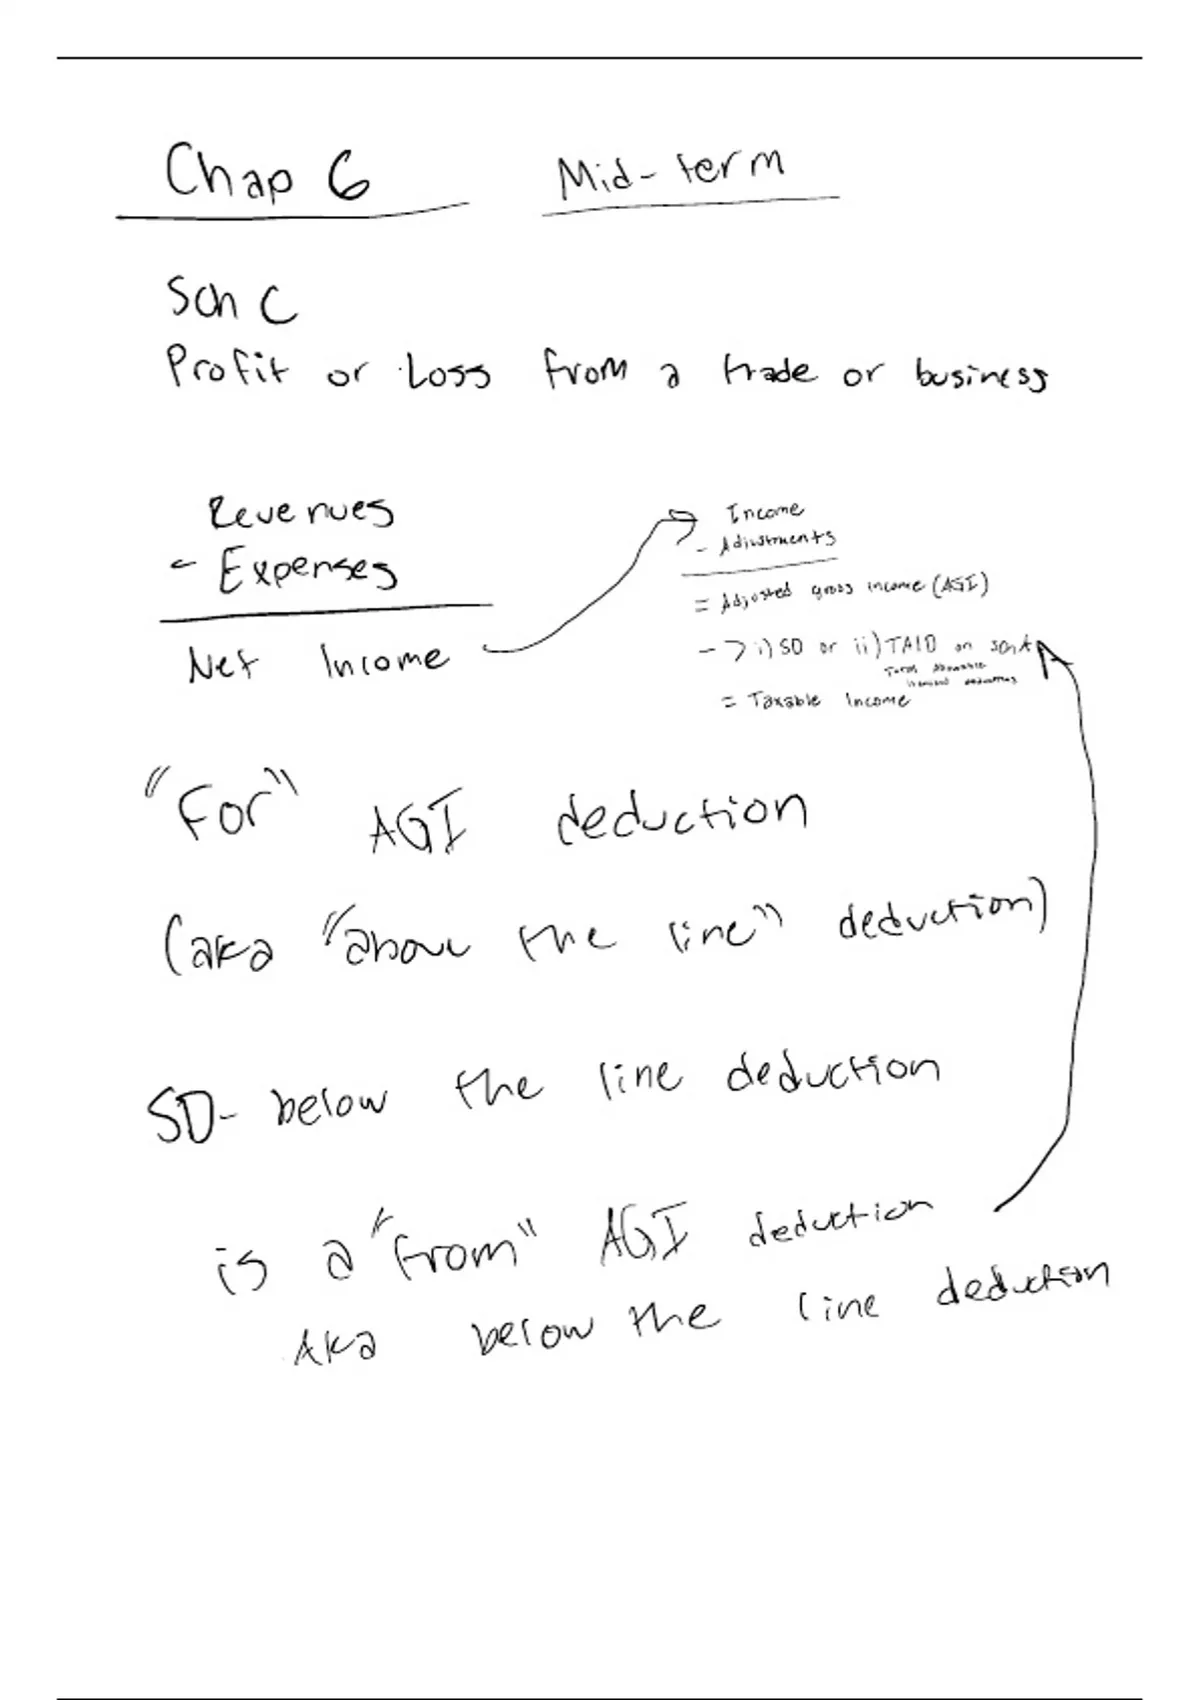 Chap 6 Mid-term
Sch C
Profit or Loss from a trade or business
Revenues
- Expenses
Net Income
Income
- Adjustments
= Adjusted gross income (AGI)
- > i) SD or ii) TAID on Sch A
Total Allowable
itemized deductions
= Taxable Income
"For" AGI deduction
(aka "above the line" deduction)
SD- below the line deduction
is a "from" AGI deduction
Aka below the line deduction